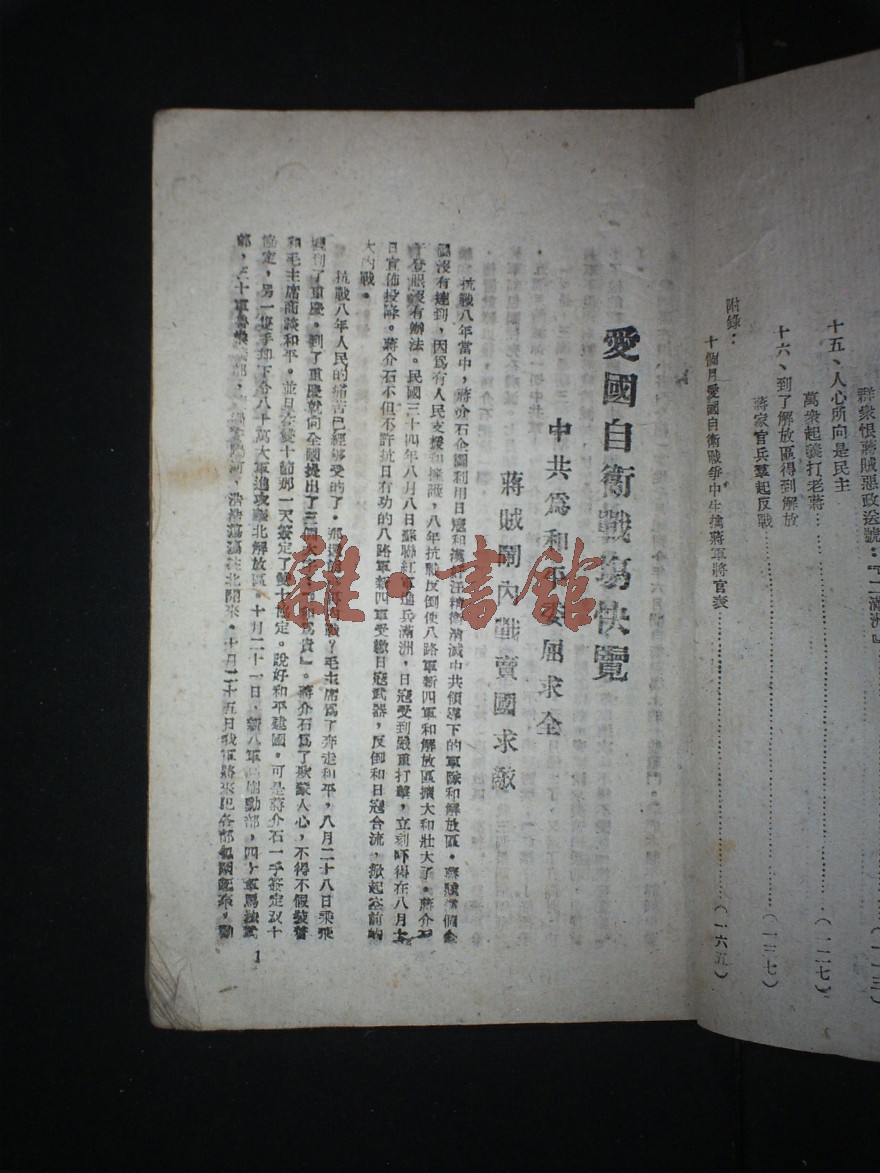 群衆恨蔣賊惡政送號：『二滿洲』……（一一三）
十五、人心所向是民主
萬衆起義打老蔣……（一二七）
十六、到了解放區得到解放
蔣家官兵羣起反戰……（一三七）
附錄：
十個月愛國自衛戰爭中生擒蔣軍將官表……（一六五）
愛國自衛戰場快覽
中共爲和平委屈求全
蔣賊鬧內戰賣國求敵
抗戰八年當中，蔣介石企圖利用日寇和漢奸汪精衛消滅中共領導下的軍隊和解放區。蔣賊這個企
圖沒有達到，因爲有人民支援和擁護，八年抗戰反倒使八路軍新四軍和解放區擴大和壯大了。蔣介石
登眼沒有辦法。民國三十四年八月八日蘇聯紅軍進兵滿洲，日寇受到嚴重打擊，立刻吓得在八月十
日宣佈投降。蔣介石不但不許抗日有功的八路軍新四軍受繳日寇武器，反倒和日寇合流，掀起空前的
大內戰。
抗戰八年人民的痛苦已經够受的了，那還能再內戰？毛主席爲了奔走和平，八月二十八日乘飛
機到了重慶。到了重慶就向全國提出了三個大字：『和爲貴』。蔣介石爲了欺騙人心，不得不假裝着
和毛主席商談和平。並且在雙十節那一天簽定了雙十協定。說好和平建國。可是蔣介石一手簽定双十
協定，另一隻手却下令八十萬大軍進攻華北解放區。十月二十一日，新八軍高樹勳部，四十軍馬法五
部，三十軍魯崇義部，過黃河，浩浩蕩蕩往北開來。十月二十五日我軍將來犯各部包圍起來，勸
1
雜·書館